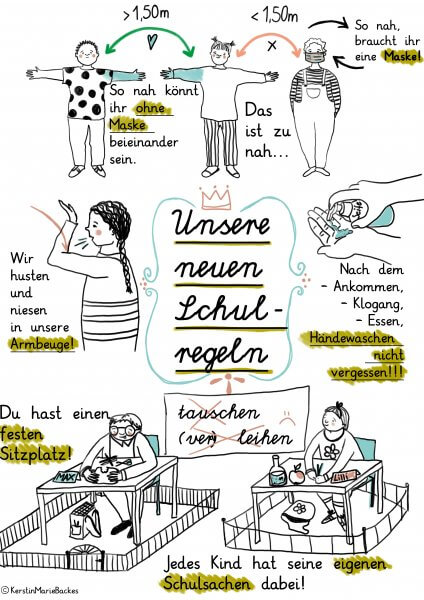 >1,50m
<1,50m
So nah,
braucht ihr
eine Maske!
So nah könnt
ihr ohne
Maske
beieinander
sein.
Das
ist zu
nah...
Unsere
neuen
Schul-
regeln
Wir
husten
und
niesen
in unsere
Armbeuge!
Nach dem
- Ankommen,
- Klogang,
- Essen,
Händewaschen
nicht
vergessen!!!
Du hast einen
festen
Sitzplatz!
tauschen
(ver) leihen
MAX
Jedes Kind hat seine eigenen
Schulsachen dabei!
©KerstinMarieBackes